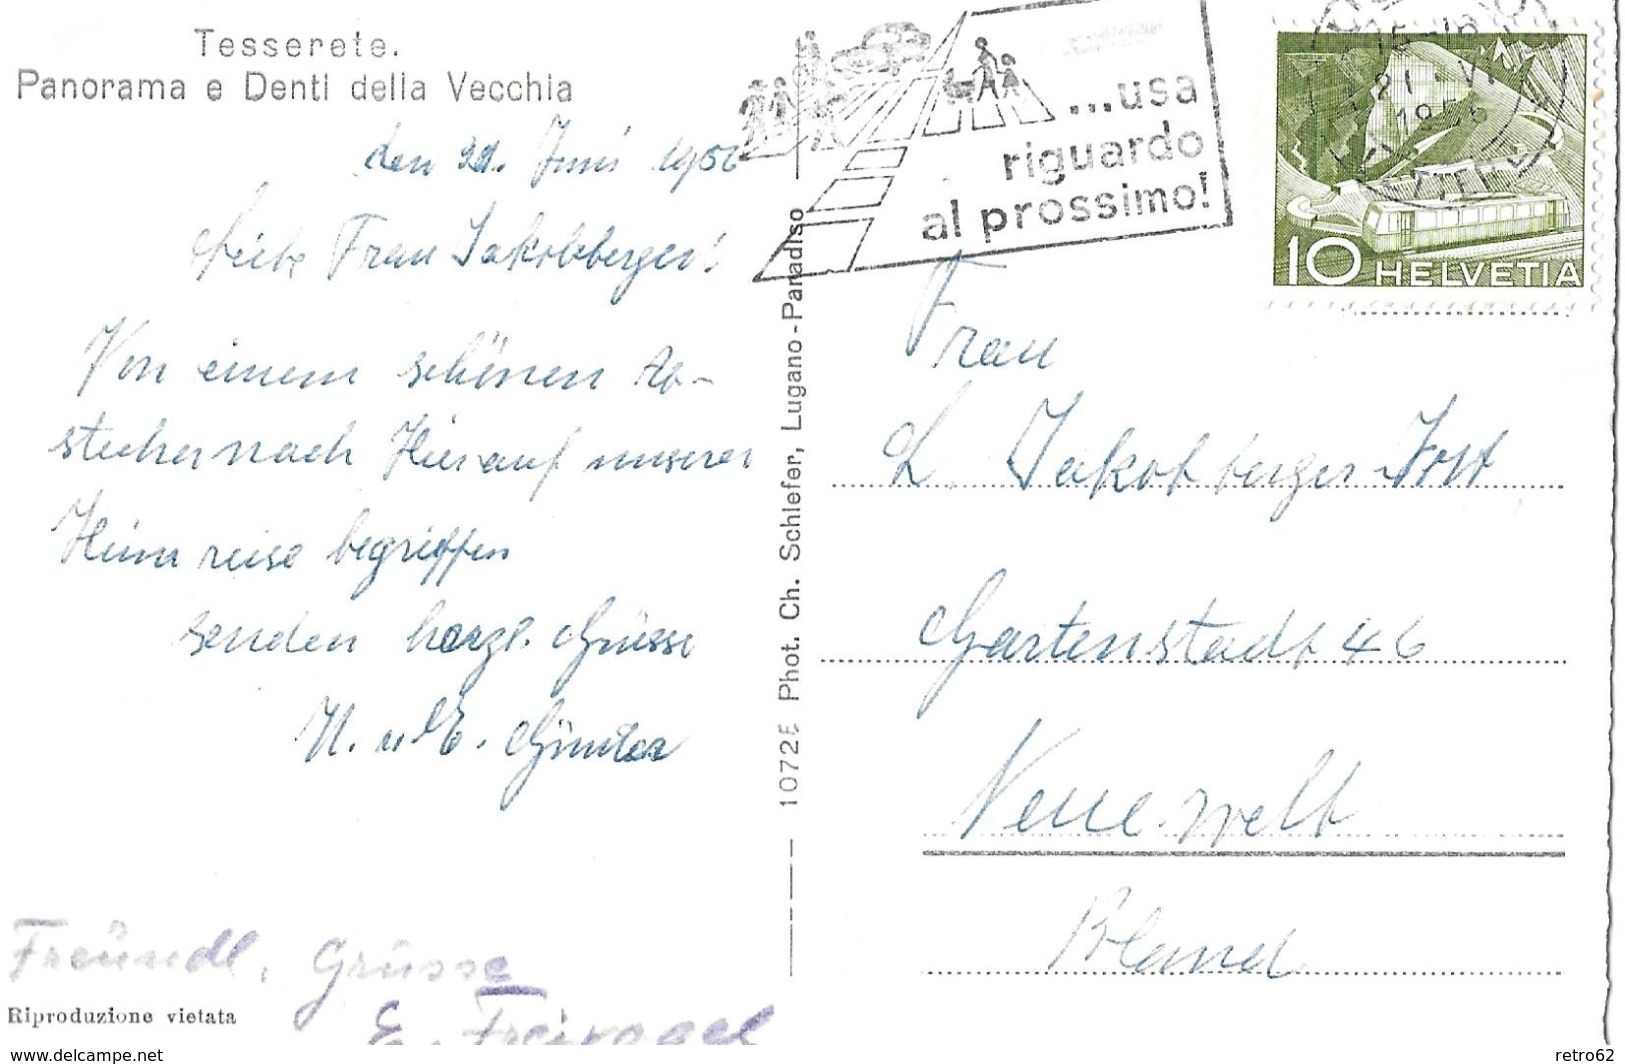 Tesserete.
Panorama e Denti della Vecchia
den 21. Juni 1956
Liebe Frau Jakobberger!
Von einem schönen Ab-
stecher nach Hier auf unserer
Heimreise begriffen
senden herzl. Grüsse
H. u. E. Günter
Freundl. Grüsse
E. Freivogel
Riproduzione vietata
10725 Phot. Ch. Schiefer, Lugano-Paradiso
...usa
riguardo
al prossimo!
15-16
21. VI
1956
10 HELVETIA
Frau
L. Jakobberger-Jost
Gartenstadt 46
Neuewelt
Bland
www.delcampe.net
retro62